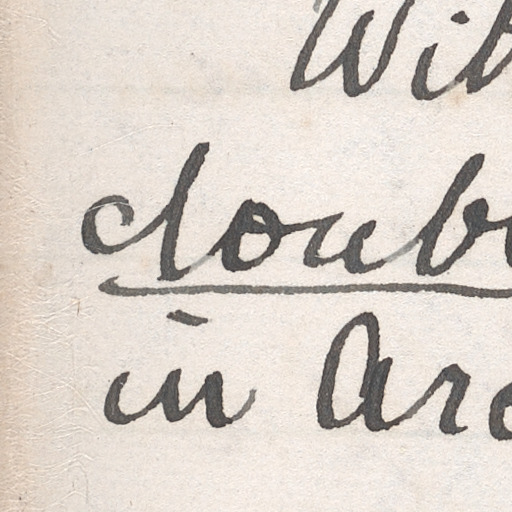 Wil
doub
in Are